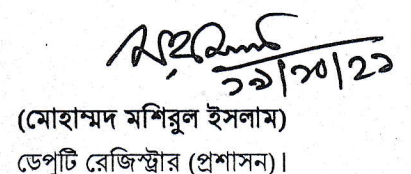 ১৯/১০/২১
(মোহাম্মদ মশিরুল ইসলাম)
ডেপুটি রেজিস্ট্রার (প্রশাসন)।